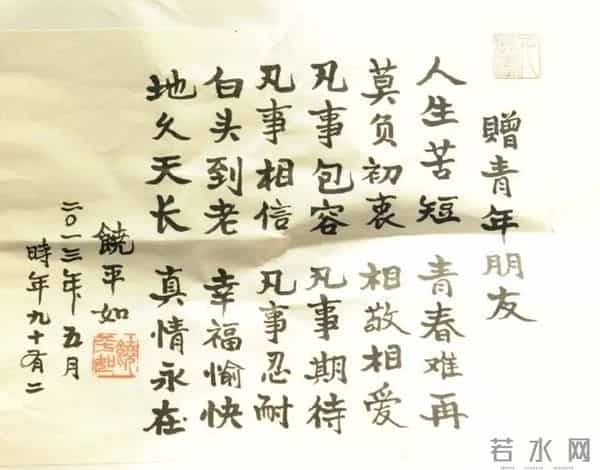 贈青年朋友
人生苦短 青春难再
莫负初衷 相敬相爱
凡事包容 凡事期待
凡事相信 凡事忍耐
白头到老 幸福愉快
地久天长 真情永在
饒平如
二〇一三年五月
時年九十有二
若水网